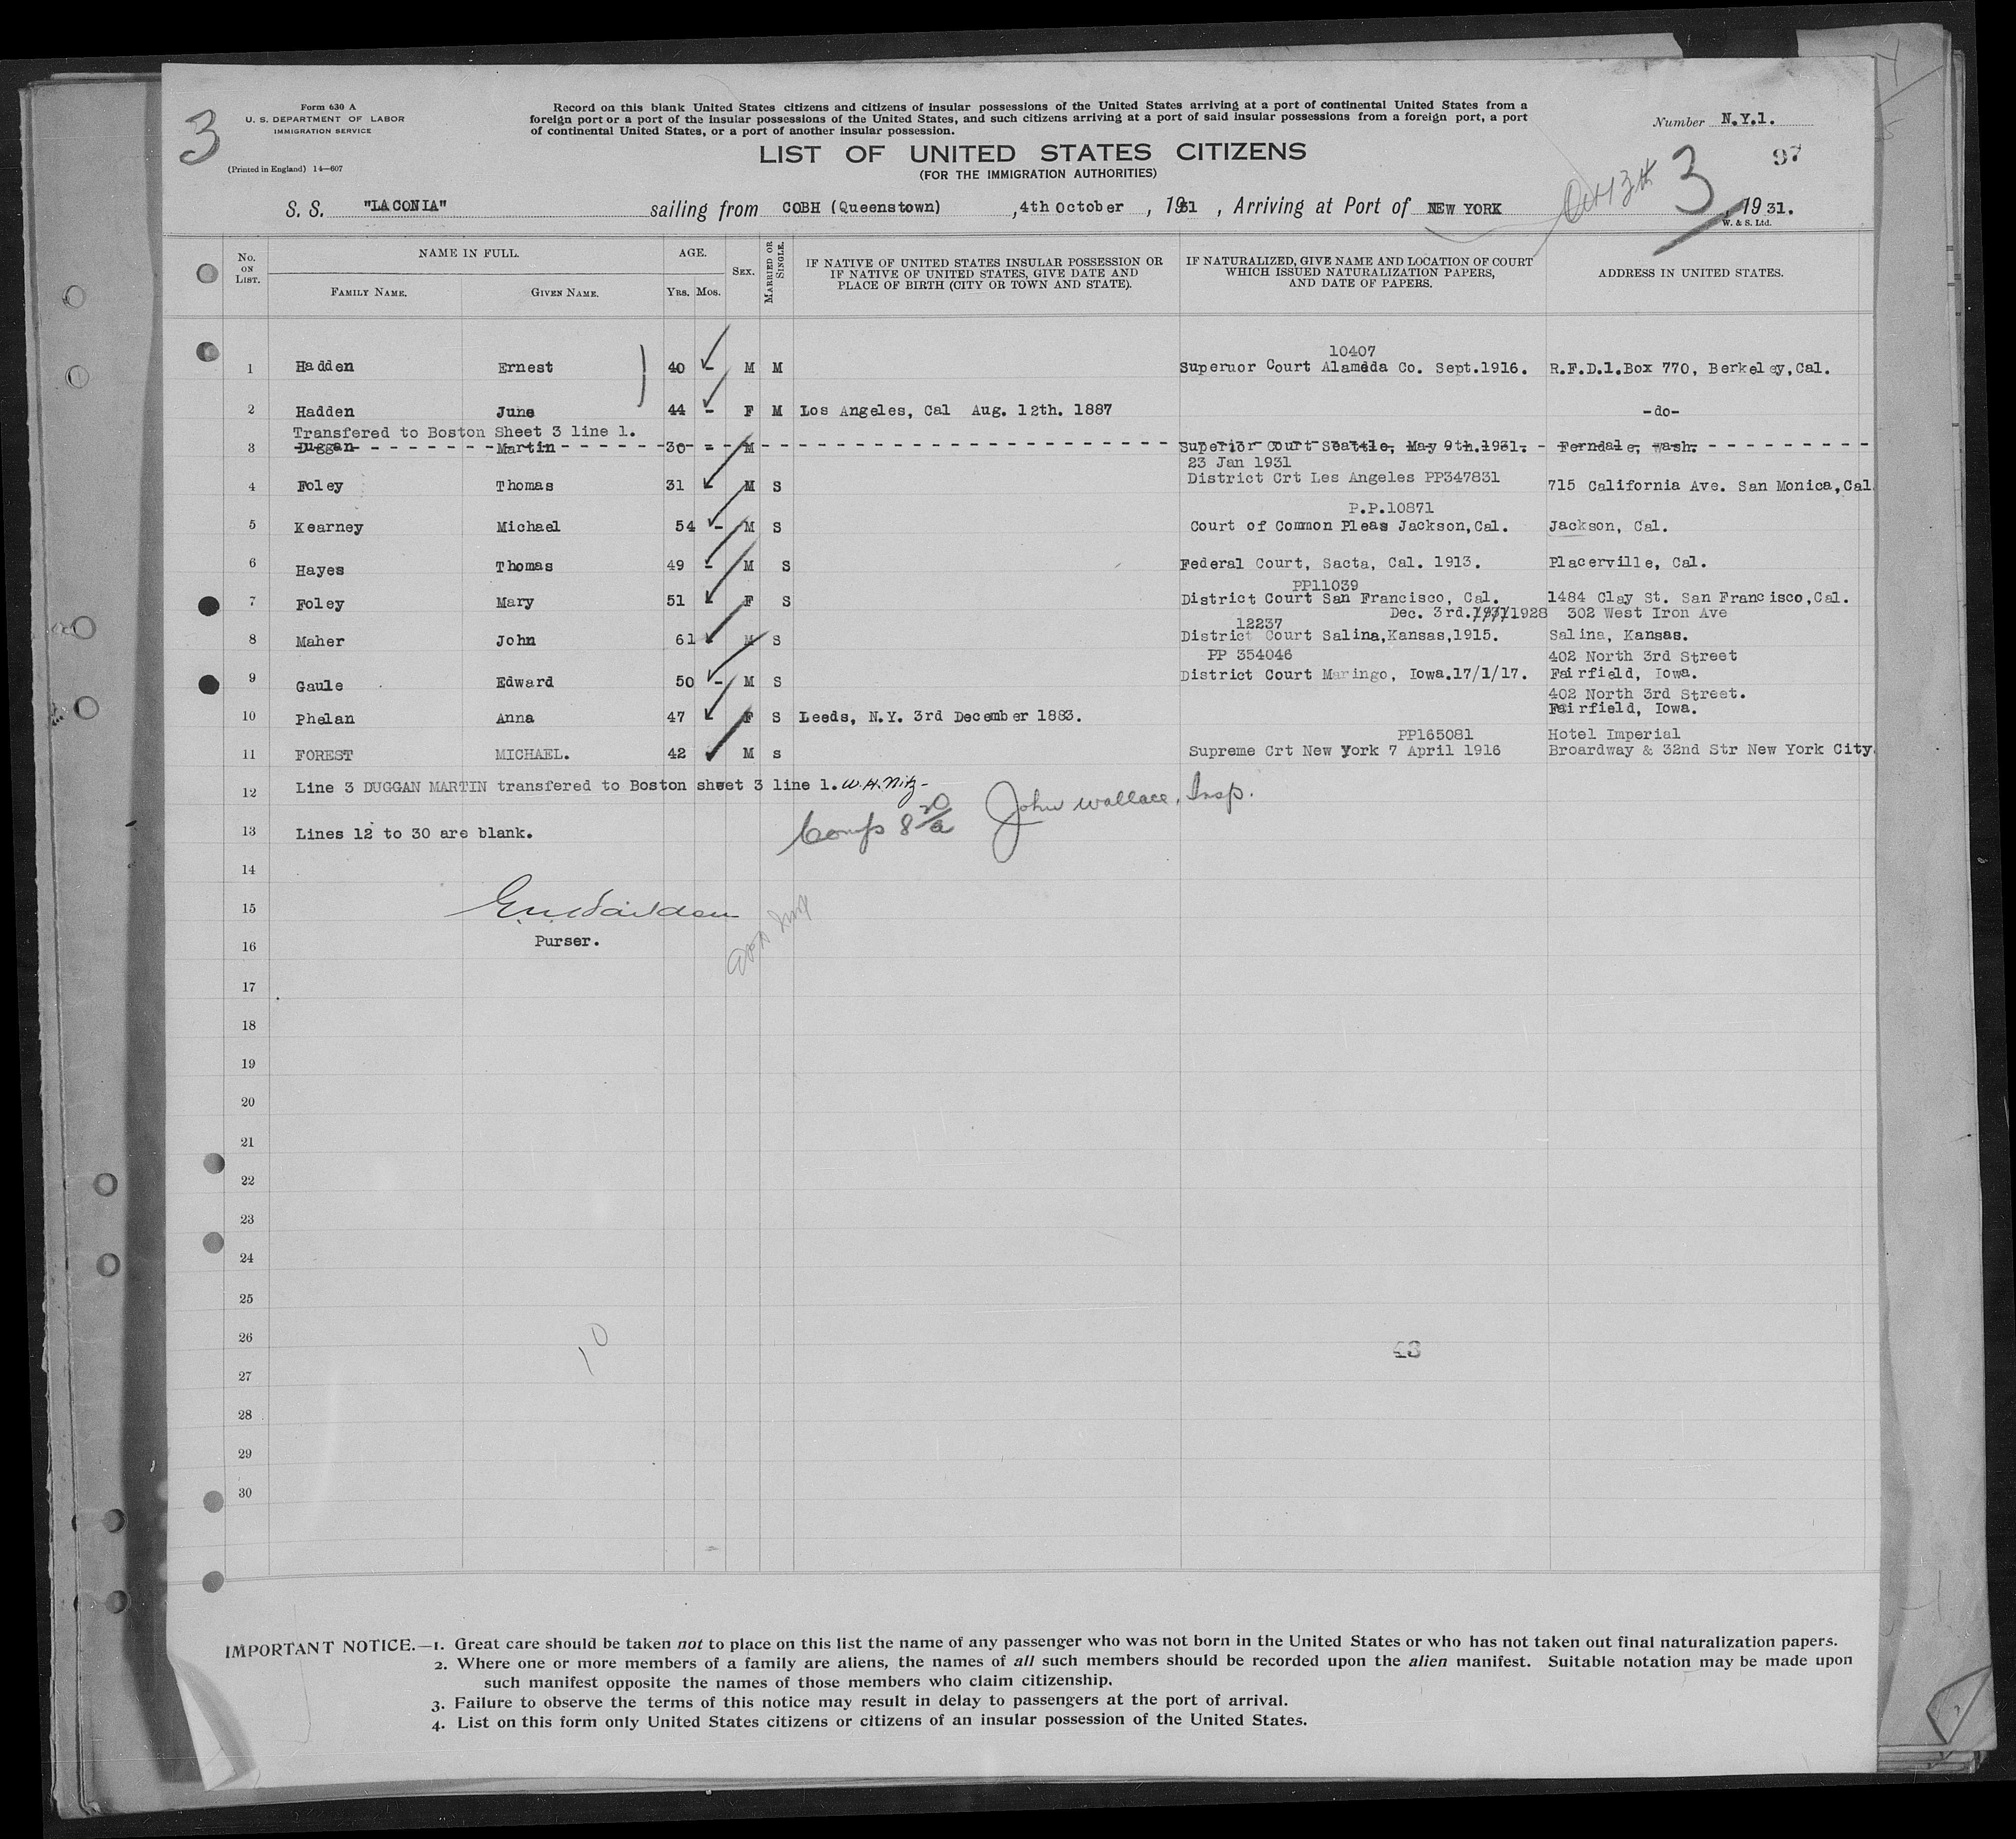 3
Form 630 A
U. S. DEPARTMENT OF LABOR
IMMIGRATION SERVICE
(Printed in England) 14—607
Record on this blank United States citizens and citizens of insular possessions of the United States arriving at a port of continental United States from a
foreign port or a port of the insular possessions of the United States, and such citizens arriving at a port of said insular possessions from a foreign port, a port
of continental United States, or a port of another insular possession.
Number N.Y.1.
LIST OF UNITED STATES CITIZENS
(FOR THE IMMIGRATION AUTHORITIES)
3 97
S. S. "LACONIA" sailing from COBH (Queenstown) ,4th October , 1931 , Arriving at Port of NEW YORK Oct 13th , 1931.
W. & S. Ltd.
No. ON LIST. NAME IN FULL. AGE. SEX. MARRIED OR SINGLE. IF NATIVE OF UNITED STATES INSULAR POSSESSION OR IF NATIVE OF UNITED STATES, GIVE DATE AND PLACE OF BIRTH (CITY OR TOWN AND STATE). IF NATURALIZED, GIVE NAME AND LOCATION OF COURT WHICH ISSUED NATURALIZATION PAPERS, AND DATE OF PAPERS. ADDRESS IN UNITED STATES.
FAMILY NAME. GIVEN NAME. YRS. MOS.
10407
1 Hadden Ernest 40 - M M Superuor Court Alameda Co. Sept.1916. R.F.D.1.Box 770, Berkeley,Cal.
2 Hadden June 44 - F M Los Angeles, Cal Aug. 12th. 1887 -do-
Transfered to Boston Sheet 3 line 1.
3 Duggan Martin 30 - M Superior Court Seattle, May 9th.1931. Ferndale, Wash.
23 Jan 1931
4 Foley Thomas 31 M S District Crt Les Angeles PP347831 715 California Ave. San Monica,Cal
P.P.10871
5 Kearney Michael 54 - M S Court of Common Pleas Jackson,Cal. Jackson, Cal.
6 Hayes Thomas 49 - M S Federal Court, Sacta, Cal. 1913. Placerville, Cal.
PP11039
7 Foley Mary 51 F S District Court San Francisco, Cal. 1484 Clay St. San Francisco,Cal.
Dec. 3rd.1931 1928 302 West Iron Ave
12237
8 Maher John 61 M S District Court Salina,Kansas,1915. Salina, Kansas.
PP 354046 402 North 3rd Street
9 Gaule Edward 50 - M S District Court Maringo, Iowa.17/1/17. Fairfield, Iowa.
402 North 3rd Street.
10 Phelan Anna 47 F S Leeds, N.Y. 3rd December 1883. Fairfield, Iowa.
PP165081 Hotel Imperial
11 FOREST MICHAEL. 42 M s Supreme Crt New York 7 April 1916 Broardway & 32nd Str New York City
12 Line 3 DUGGAN MARTIN transfered to Boston sheet 3 line 1. W.H.Nitz-
John Wallace, Insp.
13 Lines 12 to 30 are blank.
14
15
16 Purser.
17
18
19
20
21
22
23
24
25
26 10 48
27
28
29
30
IMPORTANT NOTICE.—1. Great care should be taken not to place on this list the name of any passenger who was not born in the United States or who has not taken out final naturalization papers.
2. Where one or more members of a family are aliens, the names of all such members should be recorded upon the alien manifest. Suitable notation may be made upon
such manifest opposite the names of those members who claim citizenship.
3. Failure to observe the terms of this notice may result in delay to passengers at the port of arrival.
4. List on this form only United States citizens or citizens of an insular possession of the United States.